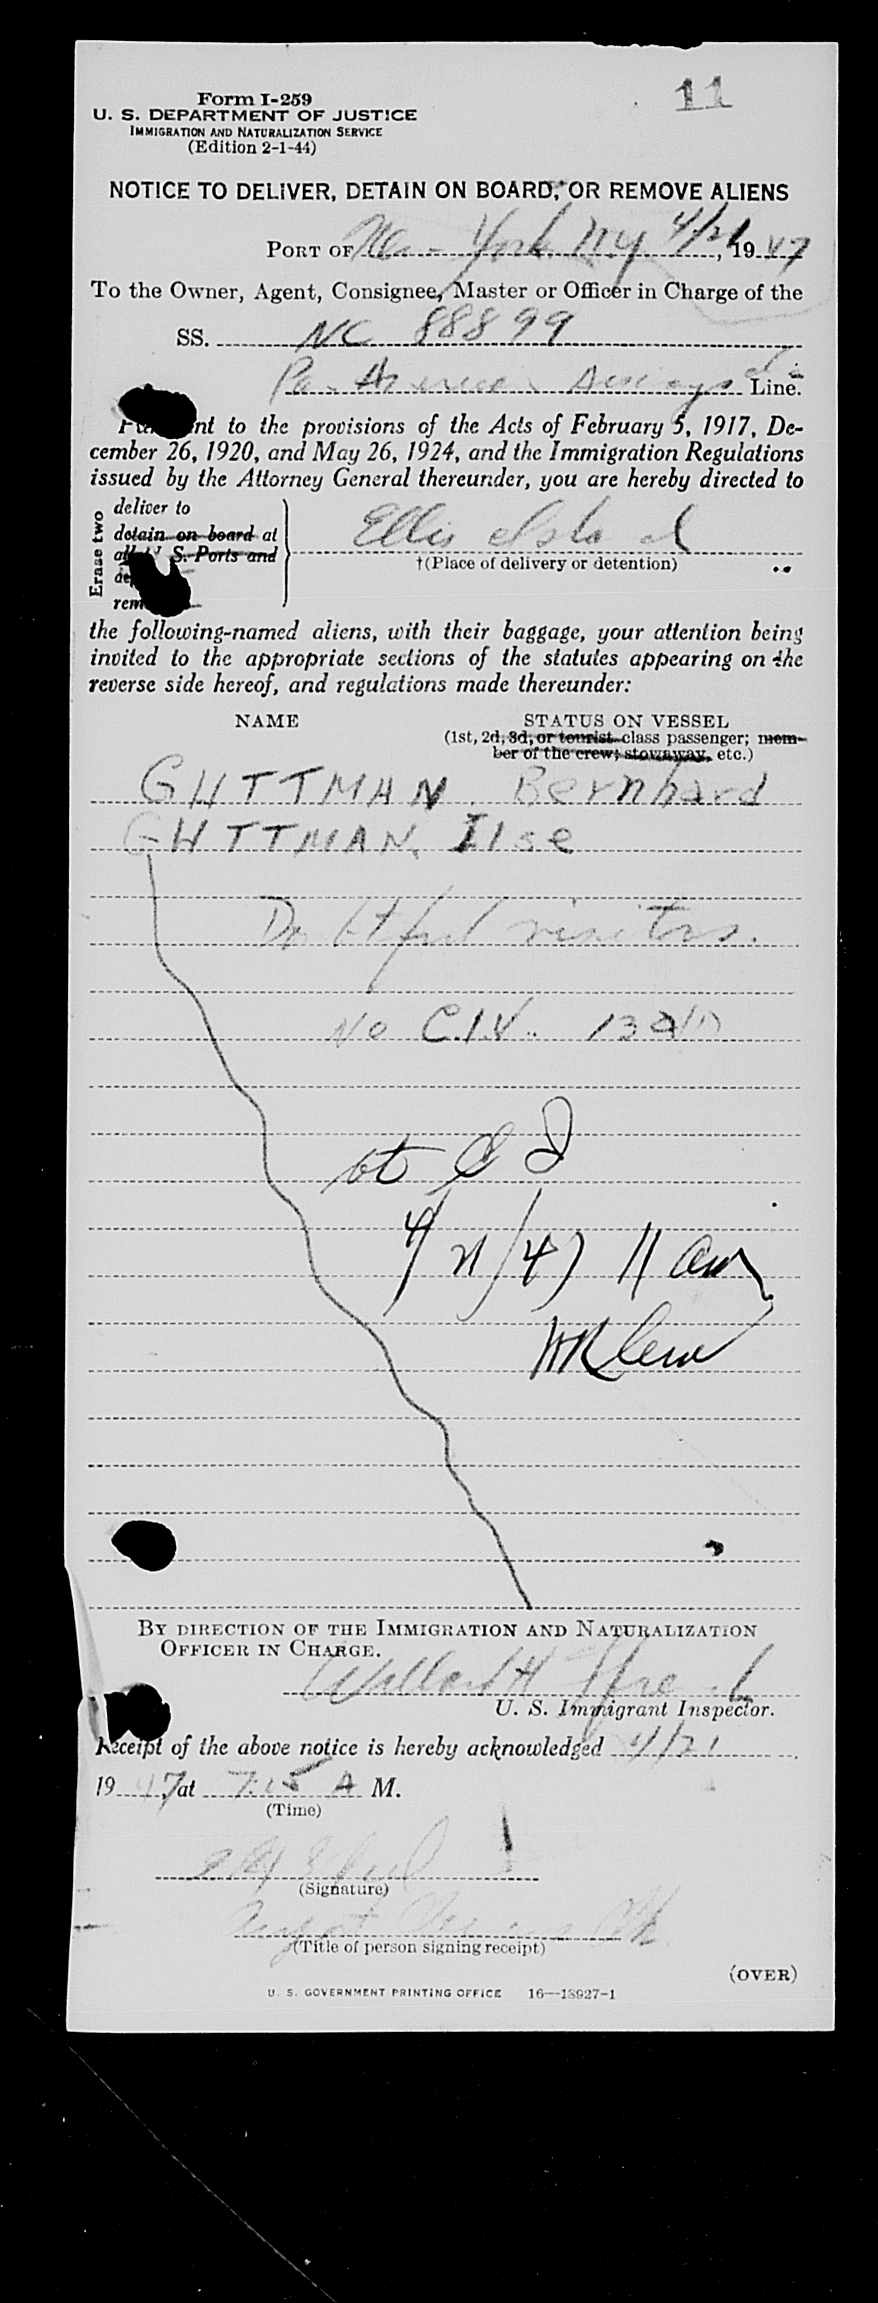 11
Form I-259
U. S. DEPARTMENT OF JUSTICE
IMMIGRATION AND NATURALIZATION SERVICE
(Edition 2-1-44)
NOTICE TO DELIVER, DETAIN ON BOARD, OR REMOVE ALIENS
PORT OF New York N.Y. 4/21, 1947
To the Owner, Agent, Consignee, Master or Officer in Charge of the
SS. NC 88899
Pan American Airways Line.
nt to the provisions of the Acts of February 5, 1917, De-
cember 26, 1920, and May 26, 1924, and the Immigration Regulations
issued by the Attorney General thereunder, you are hereby directed to
Erase two
deliver to
detain on board at
all U. S. Ports and
Ellis Island
†(Place of delivery or detention)
the following-named aliens, with their baggage, your attention being
invited to the appropriate sections of the statutes appearing on the
reverse side hereof, and regulations made thereunder:
NAME STATUS ON VESSEL
(1st, 2d, 3d, or tourist class passenger; mem-
ber of the crew; stowaway, etc.)
GUTTMAN, Bernhard
GUTTMAN, Ilse
Doubtful visitors.
No C.I.V.
at
4/21/47 11 am
BY DIRECTION OF THE IMMIGRATION AND NATURALIZATION
OFFICER IN CHARGE.
Willard H
U. S. Immigrant Inspector.
Receipt of the above notice is hereby acknowledged 4/21
1947 at 7:15 A M.
(Time)
(Signature)
(Title of person signing receipt)
(OVER)
U. S. GOVERNMENT PRINTING OFFICE 16—13927-1